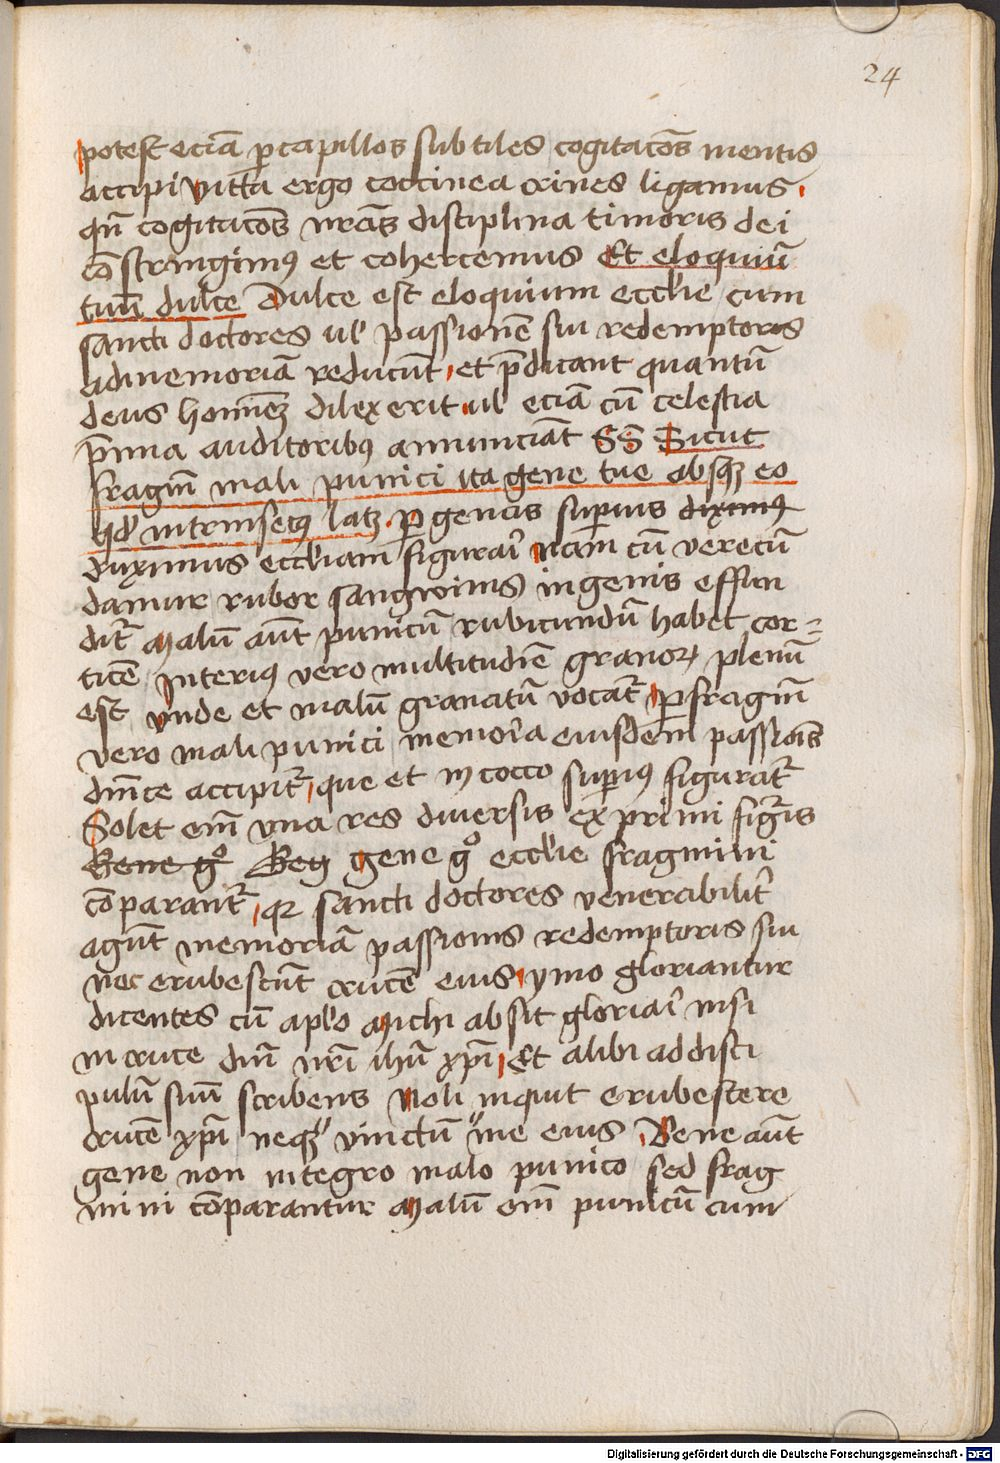 24
potest eciā ꝑ capillos subtiles cogitacōs mentis
accipi vitta ergo coccinea crines ligamus
qn̄ cogitacōs nrās disciplina timoris dei
cōstringimꝰ et cohercemus Et eloquiū
tuū dulce Dulce est eloquium eccl̄ie cum
sancti doctores ul̓ passionē sui redemptoris
ad memoriā reducūt et p̄dicant quantū
deus hominē dilexerit ul̓ eciā cū celestia
p̄mia auditoribꝰ annunciāt SS Sicut
fragmn̄ mali punici ita gene tue absqꝫ eo
qd̓ intrinsecꝰ latꝫ ꝑ genas suꝑius diximꝰ
diximus eccl̄iam figurari nam cū verecū
damur rubor sangwinis in genis effun
dit᷑ Malū aūt punicū rubicundū habet cor⸗
ticē interiꝰ vero multitudīe granoꝝ plenū
est vnde et malū granatū vocat᷑ ꝑ fragmn̄
vero mali punici memoria eiusdem passiōis
dn̄ice accipit᷑ que et in cocco suꝑiꝰ figurat᷑
Solet em̄ vna res diuersis exprimi figuris
Bene gͦ Geꝫ gene gͦ eccl̄ie fragmini
cōparant᷑ qꝛ sancti doctores venerabilit᷑
agūt memoriā passionis redemptoris sui
nec erubescūt crucē eius ymo gloriantur
dicentes cū apl̄o Michi absit gloriari nisi
in cruce dn̄i nr̄i ihū xp̄i Et alibi ad disci
pulū suū scribens Noli inquit erubescere
crucē xp̄i neqꝫ vinctū me eius Bene aūt
gene non integro malo punico sed frag
mini cōparantur Malū em̄ punicū cum
Digitalisierung gefördert durch die Deutsche Forschungsgemeinschaft - DFG